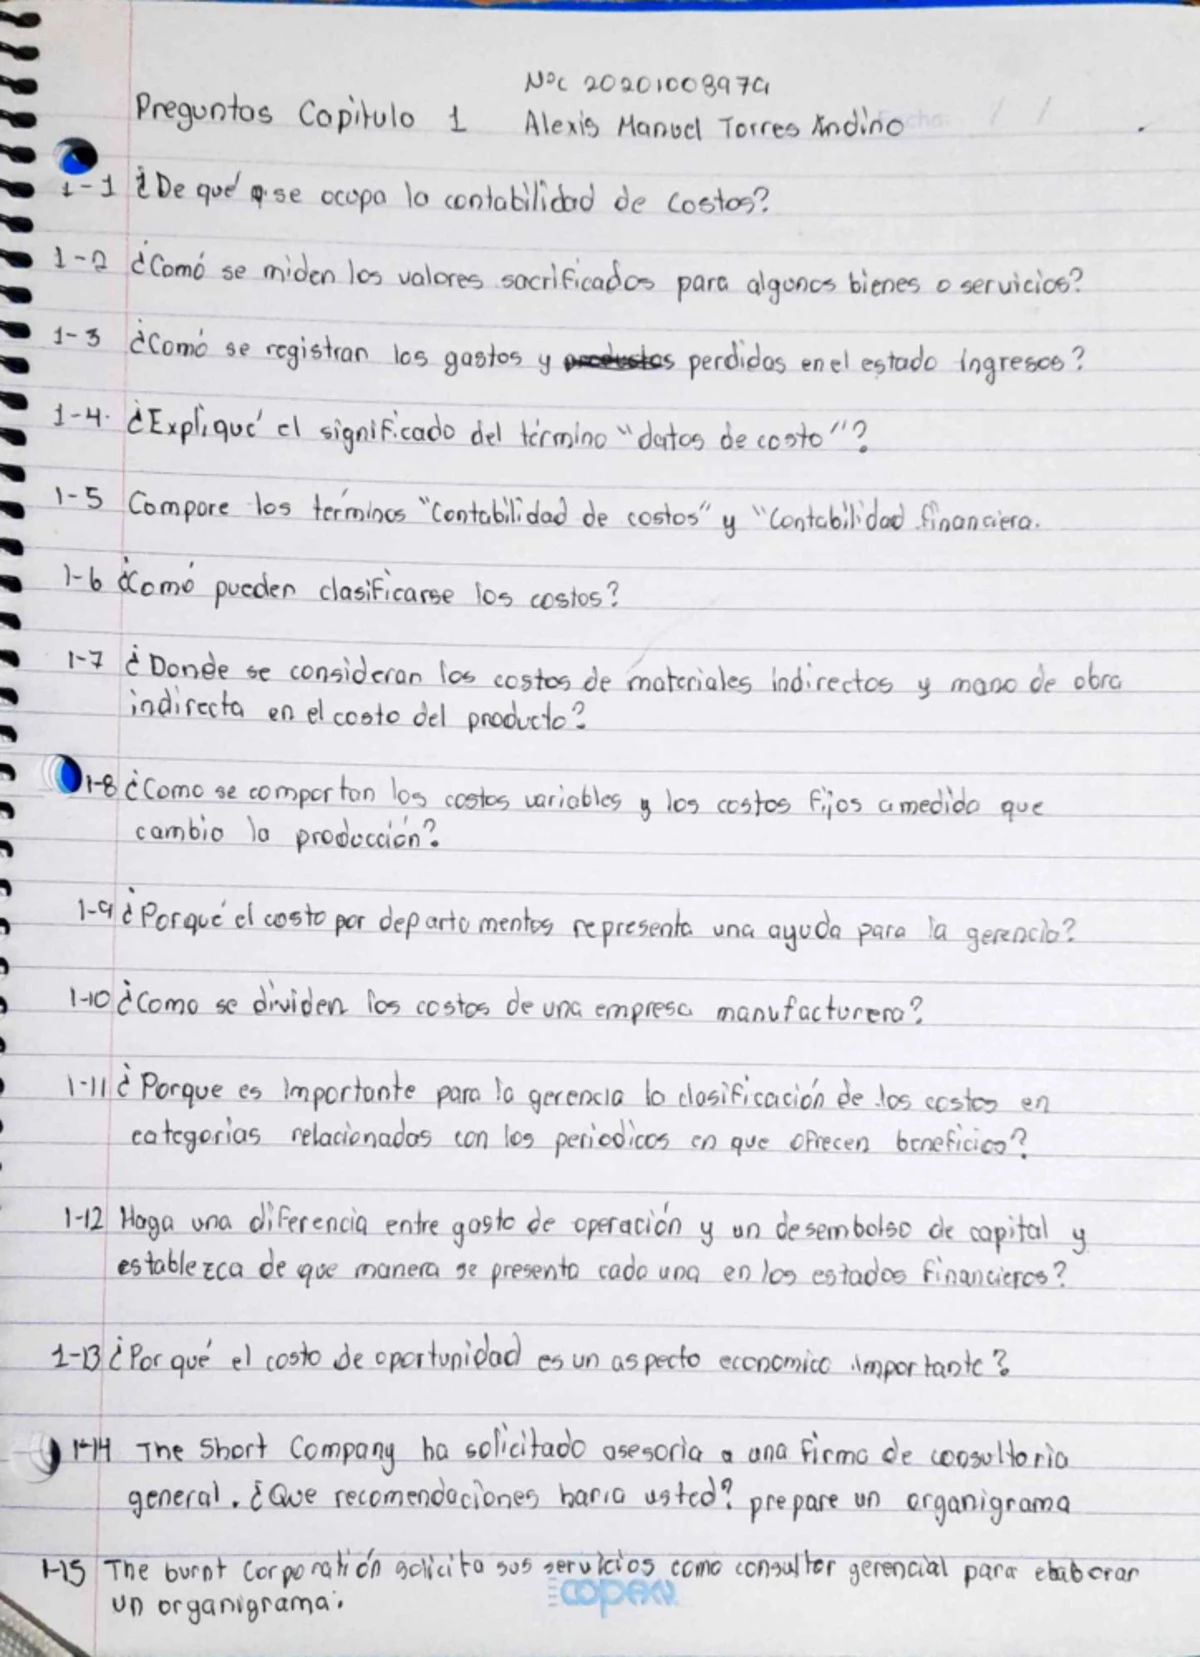 Noc 20201008979
Preguntas Capitulo 1 Alexis Manuel Torres Andino
Fecha: / /
1-1 ¿De qué se ocupa la contabilidad de costos?
1-2 ¿Comó se miden los valores sacrificados para algunos bienes o servicios?
1-3 ¿Comó se registran los gastos y productos perdidas en el estado ingresos?
1-4. ¿Expliqué el significado del término "datos de costo"?
1-5 Compare los términos "Contabilidad de costos" y "Contabilidad financiera.
1-6 ¿Comó pueden clasificarse los costos?
1-7 ¿Donde se consideran los costos de materiales indirectos y mano de obra
indirecta en el costo del producto?
1-8 ¿Como se comportan los costos variables y los costos fijos a medida que
cambio la producción?
1-9 ¿Porqué el costo por departamentos representa una ayuda para la gerencia?
1-10 ¿Como se dividen los costos de una empresa manufacturera?
1-11 ¿Porque es importante para la gerencia la clasificación de los costos en
categorias relacionadas con los periodicos en que ofrecen beneficios?
1-12 Haga una diferencia entre gasto de operación y un desembolso de capital y
establezca de que manera se presenta cada una en los estados financieros?
1-13 ¿Por qué el costo de oportunidad es un aspecto economico importante?
1-14 The Short Company ha solicitado asesoria a una firma de consultoria
general. ¿Que recomendaciones haria usted? prepare un organigrama
1-15 The burnt Corporatión solicita sus servicios como consultor gerencial para elaborar
un organigrama.
COPAN